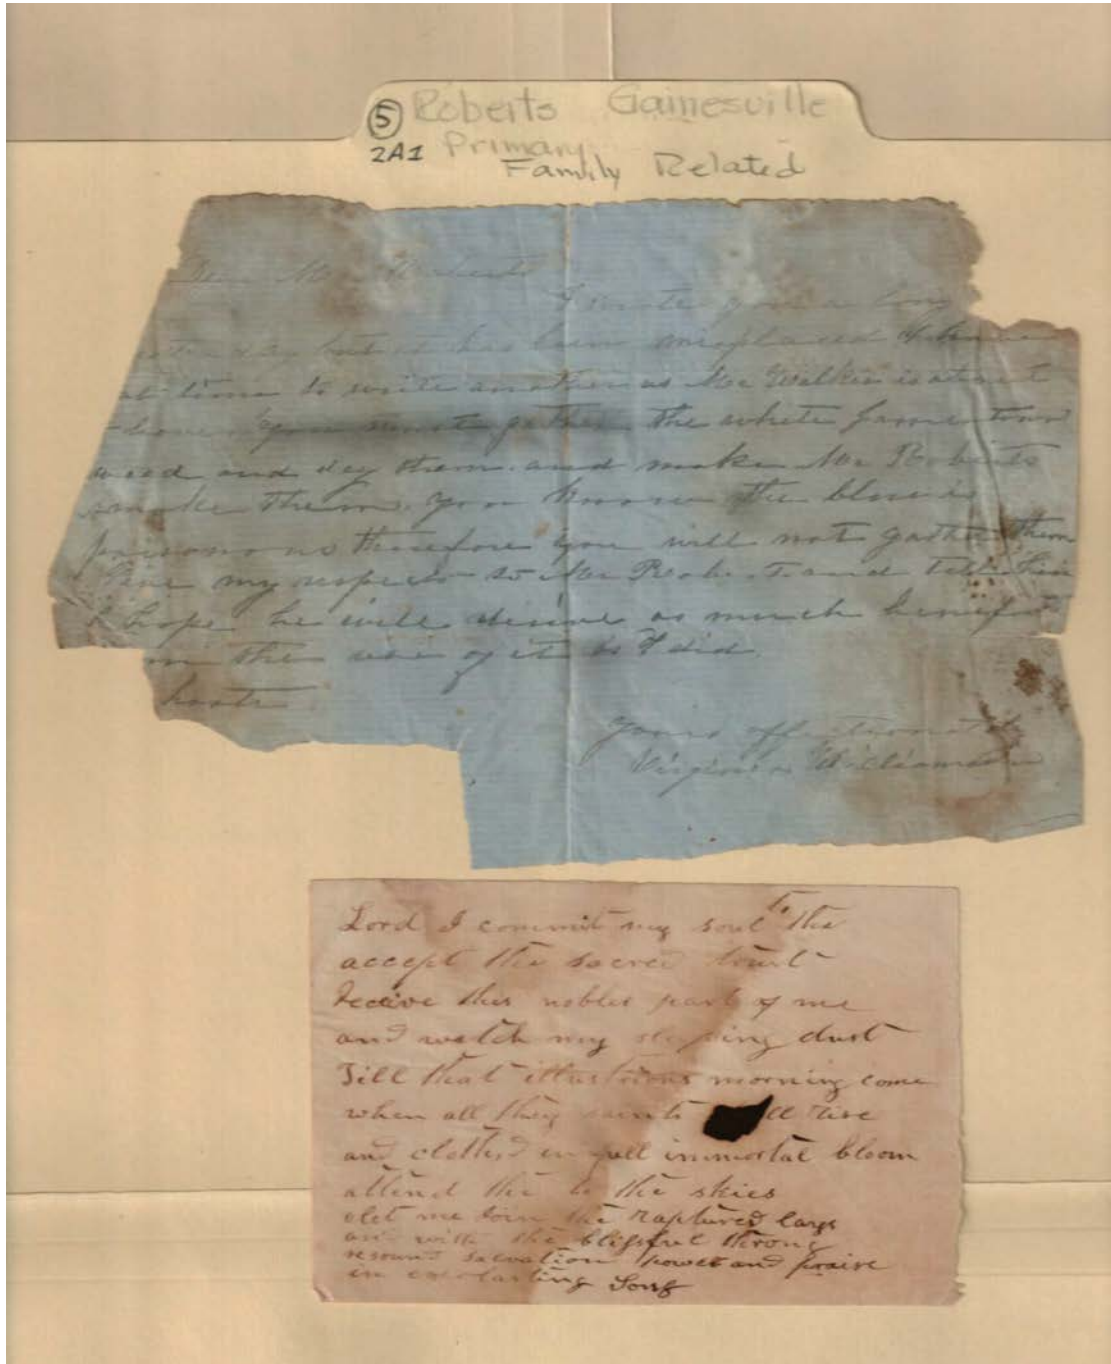 5 Roberts Gainesville
2A1 Primary
Family Related
Dear Mrs Roberts
I wrote you a long
but it has been misplaced
time to write another as Mr Wilkin is about
You must gather the white Jamestown
weed and dry them and make Mr Roberts
smoke them. You know the blue is
poisonous therefore you will not gather them
Give my respects to Mr Roberts and tell him
I hope he will derive as much benefit
the use of it as I did.
haste
Yours affectionately
Virginia Williamson
Lord I commit my soul to the
accept the sacred trust
Receive this nobler part of me
and watch my sleeping dust
Till that illustrious morning come
when all thy saints ll rise
and clothed in full immortal bloom
attend the to the skies
olet me join the raptured lays
and with the blissful throng
resound salvation power and praise
in everlasting Song